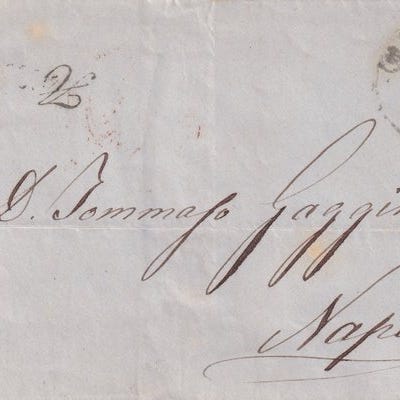 2
D. Tommaso Gaggin
Nap